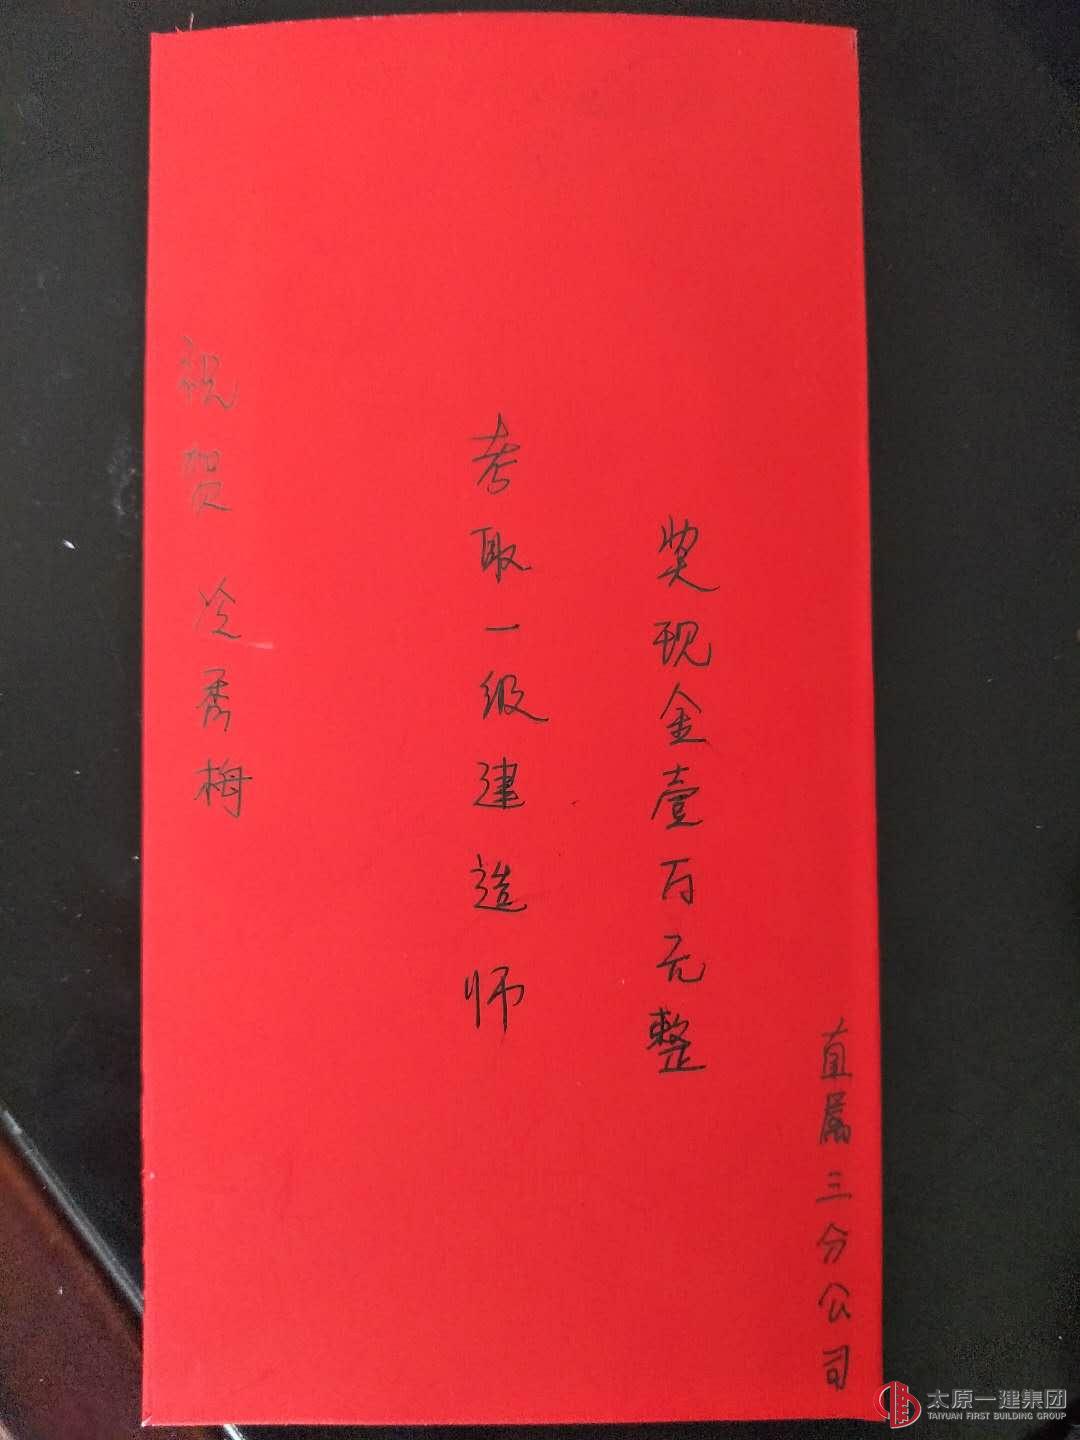 祝贺冷秀梅
考取一级建造师
奖现金壹百元整
直属三分公司
太原一建集团
TAIYUAN FIRST BUILDING GROUP